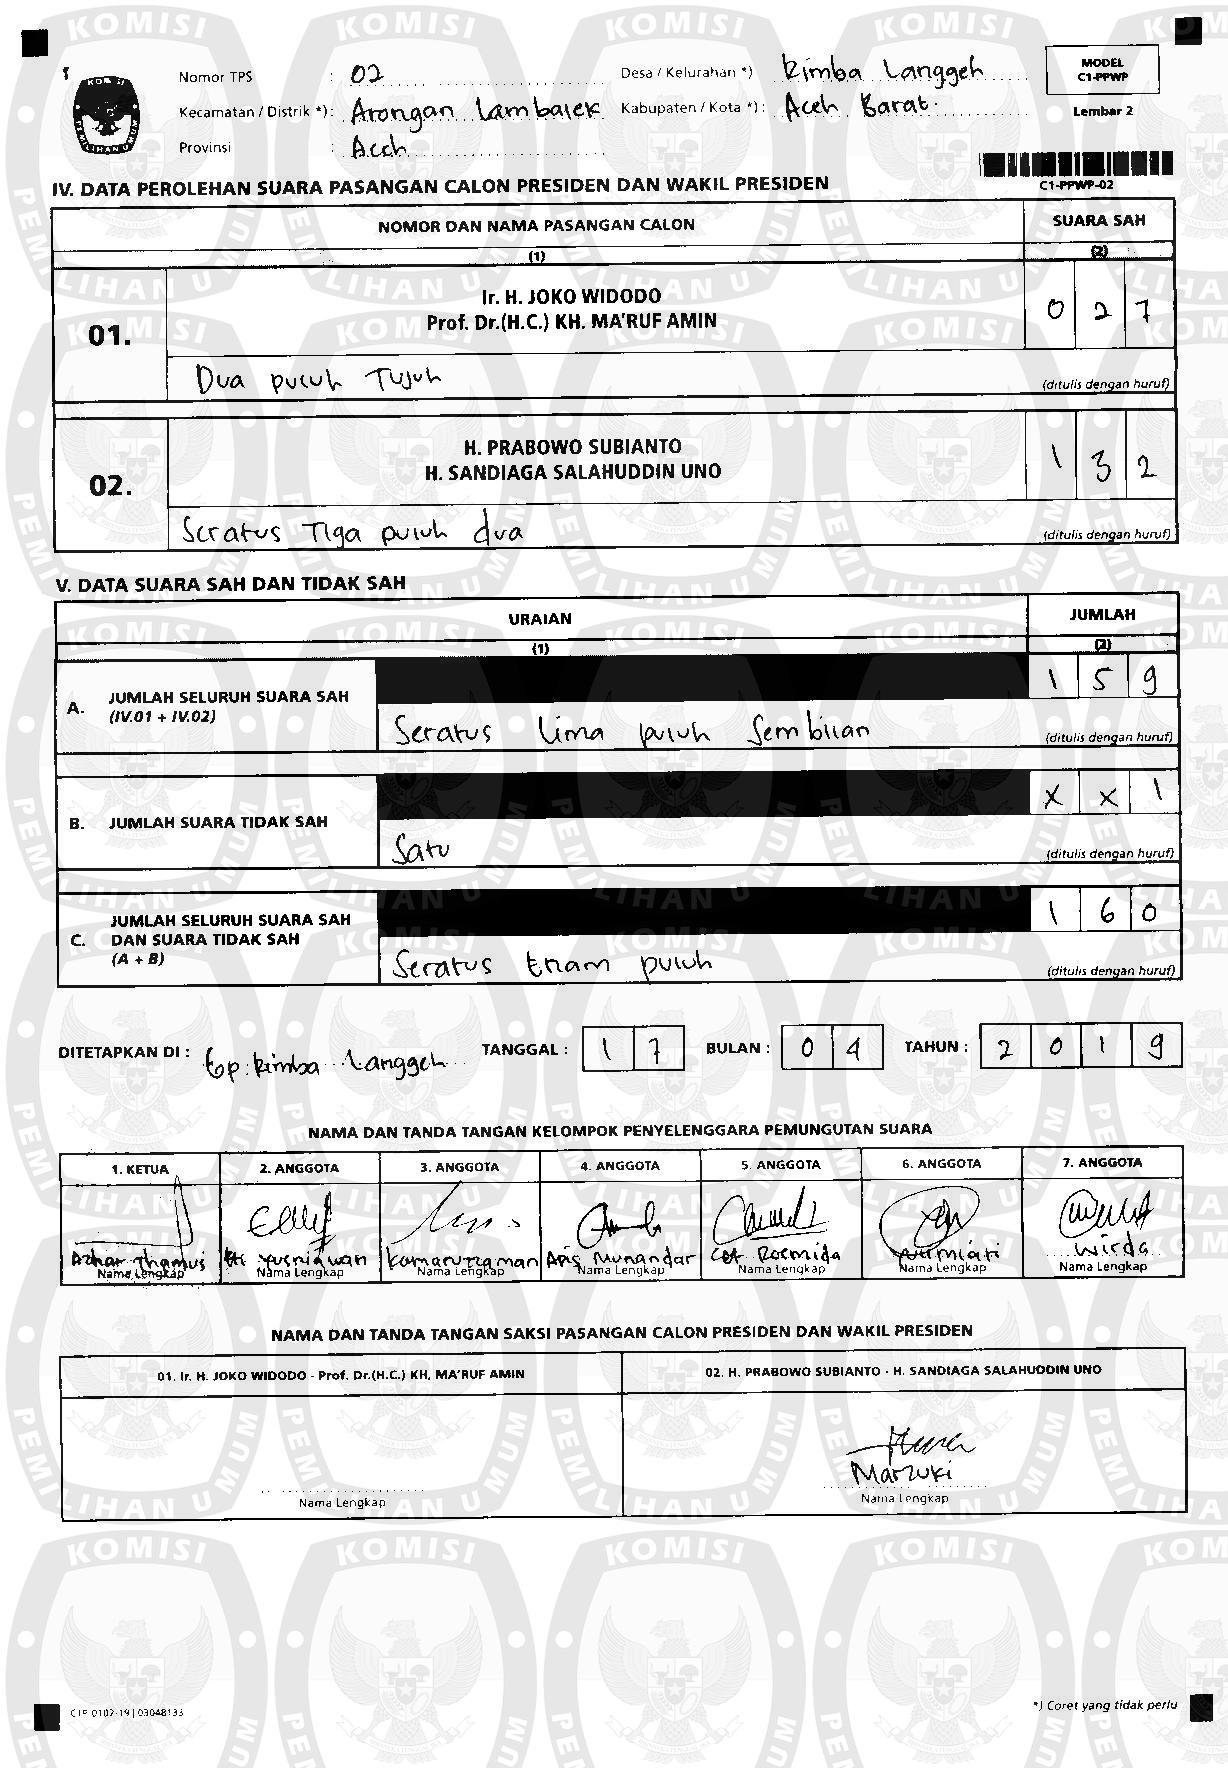 Nomor TPS : 02
Desa / Kelurahan *) Rimba Langgeh
MODEL
C1-PPWP
Kecamatan / Distrik *): Arongan Lambalek
Kabupaten / Kota *): Aceh Barat.
Lembar 2
Provinsi : Aceh
C1-PPWP-02
IV. DATA PEROLEHAN SUARA PASANGAN CALON PRESIDEN DAN WAKIL PRESIDEN
NOMOR DAN NAMA PASANGAN CALON
SUARA SAH
(1)
(2)
01.
Ir. H. JOKO WIDODO
Prof. Dr.(H.C.) KH. MA'RUF AMIN
0 2 7
Dua puluh Tujuh
(ditulis dengan huruf)
02.
H. PRABOWO SUBIANTO
H. SANDIAGA SALAHUDDIN UNO
1 3 2
Seratus Tiga puluh dua
(ditulis dengan huruf)
V. DATA SUARA SAH DAN TIDAK SAH
URAIAN
JUMLAH
(1)
(2)
A. JUMLAH SELURUH SUARA SAH
(IV.01 + IV.02)
1 5 9
Seratus Lima puluh Sembilan
(ditulis dengan huruf)
B. JUMLAH SUARA TIDAK SAH
X X 1
Satu
(ditulis dengan huruf)
C. JUMLAH SELURUH SUARA SAH
DAN SUARA TIDAK SAH
(A + B)
1 6 0
Seratus Enam puluh
(ditulis dengan huruf)
DITETAPKAN DI : Gp. Rimba Langgeh TANGGAL : 1 7 BULAN : 0 4 TAHUN : 2 0 1 9
NAMA DAN TANDA TANGAN KELOMPOK PENYELENGGARA PEMUNGUTAN SUARA
1. KETUA 2. ANGGOTA 3. ANGGOTA 4. ANGGOTA 5. ANGGOTA 6. ANGGOTA 7. ANGGOTA
Azhar Thamus
Yusniawan
Kamaruzzaman
Aris Munandar
Cut Rosmida
Nurmiati
Wirda
Nama Lengkap Nama Lengkap Nama Lengkap Nama Lengkap Nama Lengkap Nama Lengkap Nama Lengkap
NAMA DAN TANDA TANGAN SAKSI PASANGAN CALON PRESIDEN DAN WAKIL PRESIDEN
01. Ir. H. JOKO WIDODO - Prof. Dr.(H.C.) KH. MA'RUF AMIN
02. H. PRABOWO SUBIANTO - H. SANDIAGA SALAHUDDIN UNO
Marzuki
Nama Lengkap
Nama Lengkap
*) Coret yang tidak perlu